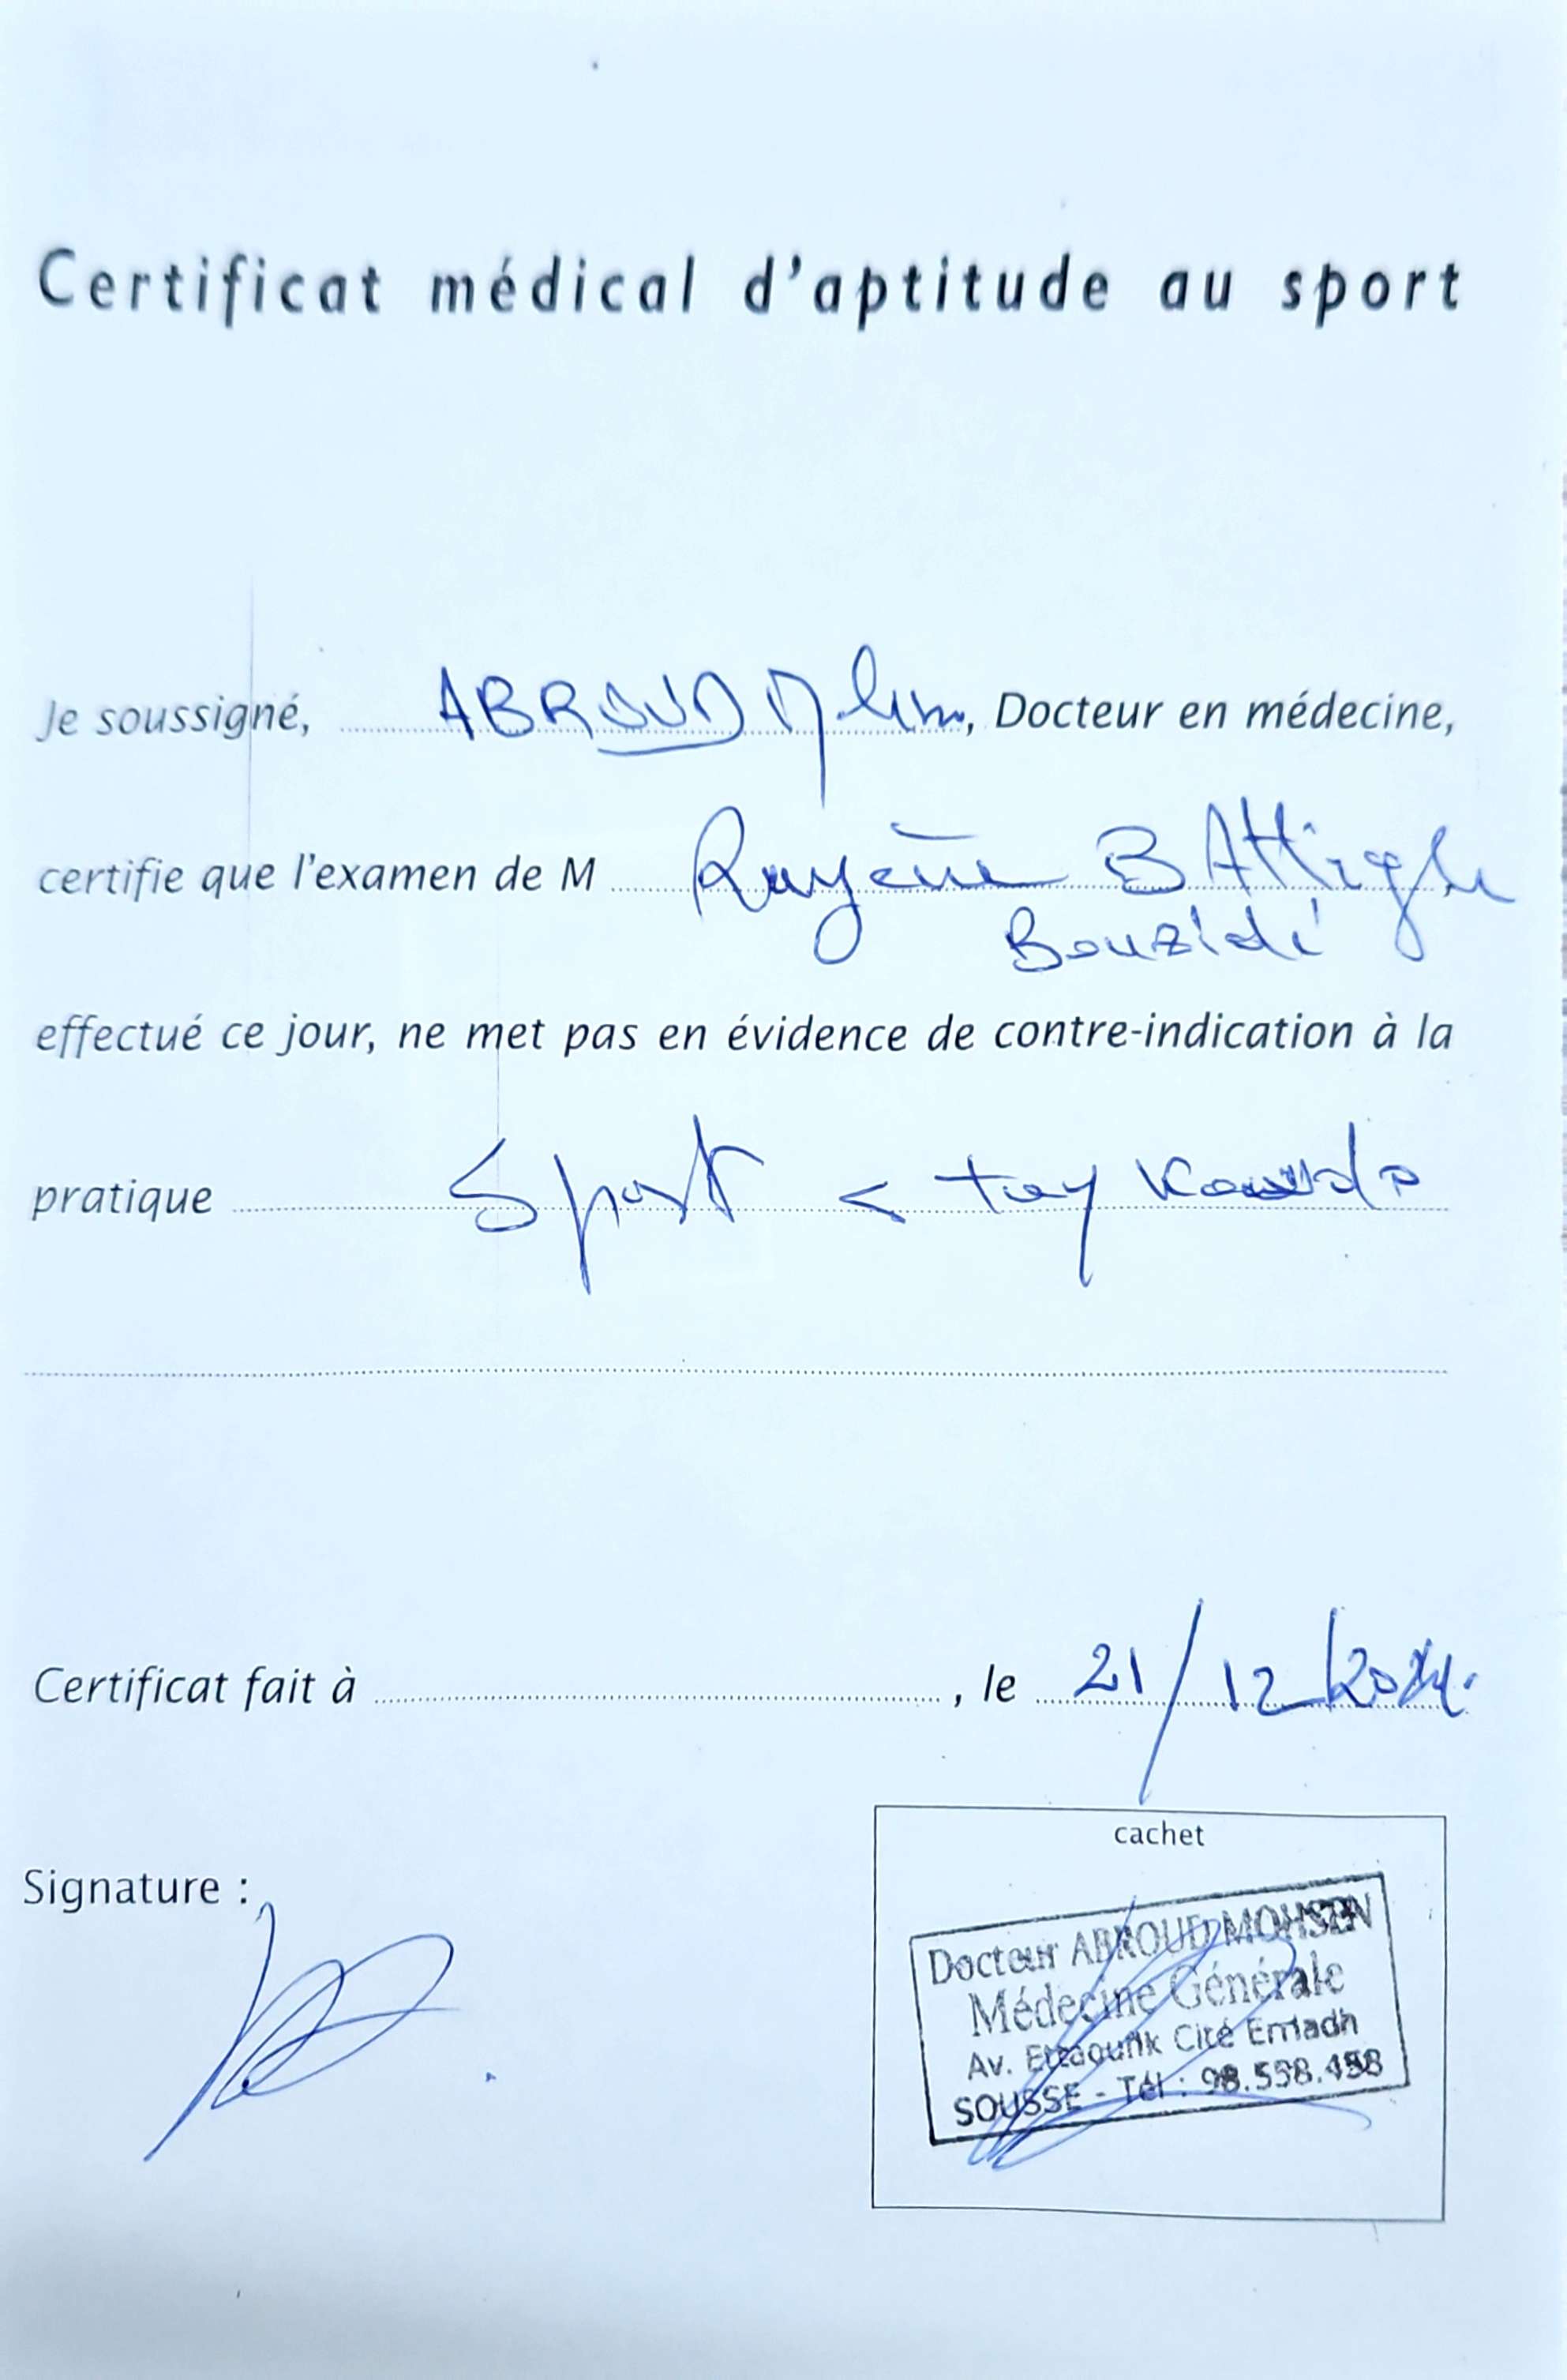 Certificat médical d'aptitude au sport
Je soussigné, ABROUD, Docteur en médecine,
certifie que l'examen de M
Bouzidi
effectué ce jour, ne met pas en évidence de contre-indication à la
pratique Sport
Certificat fait à , le 21/12/
Signature :
cachet
Docteur ABROUD MOHSEN
Médecine Générale
Av. Ettaoufik Cité Erriadh
SOUSSE - Tél : 98.558.